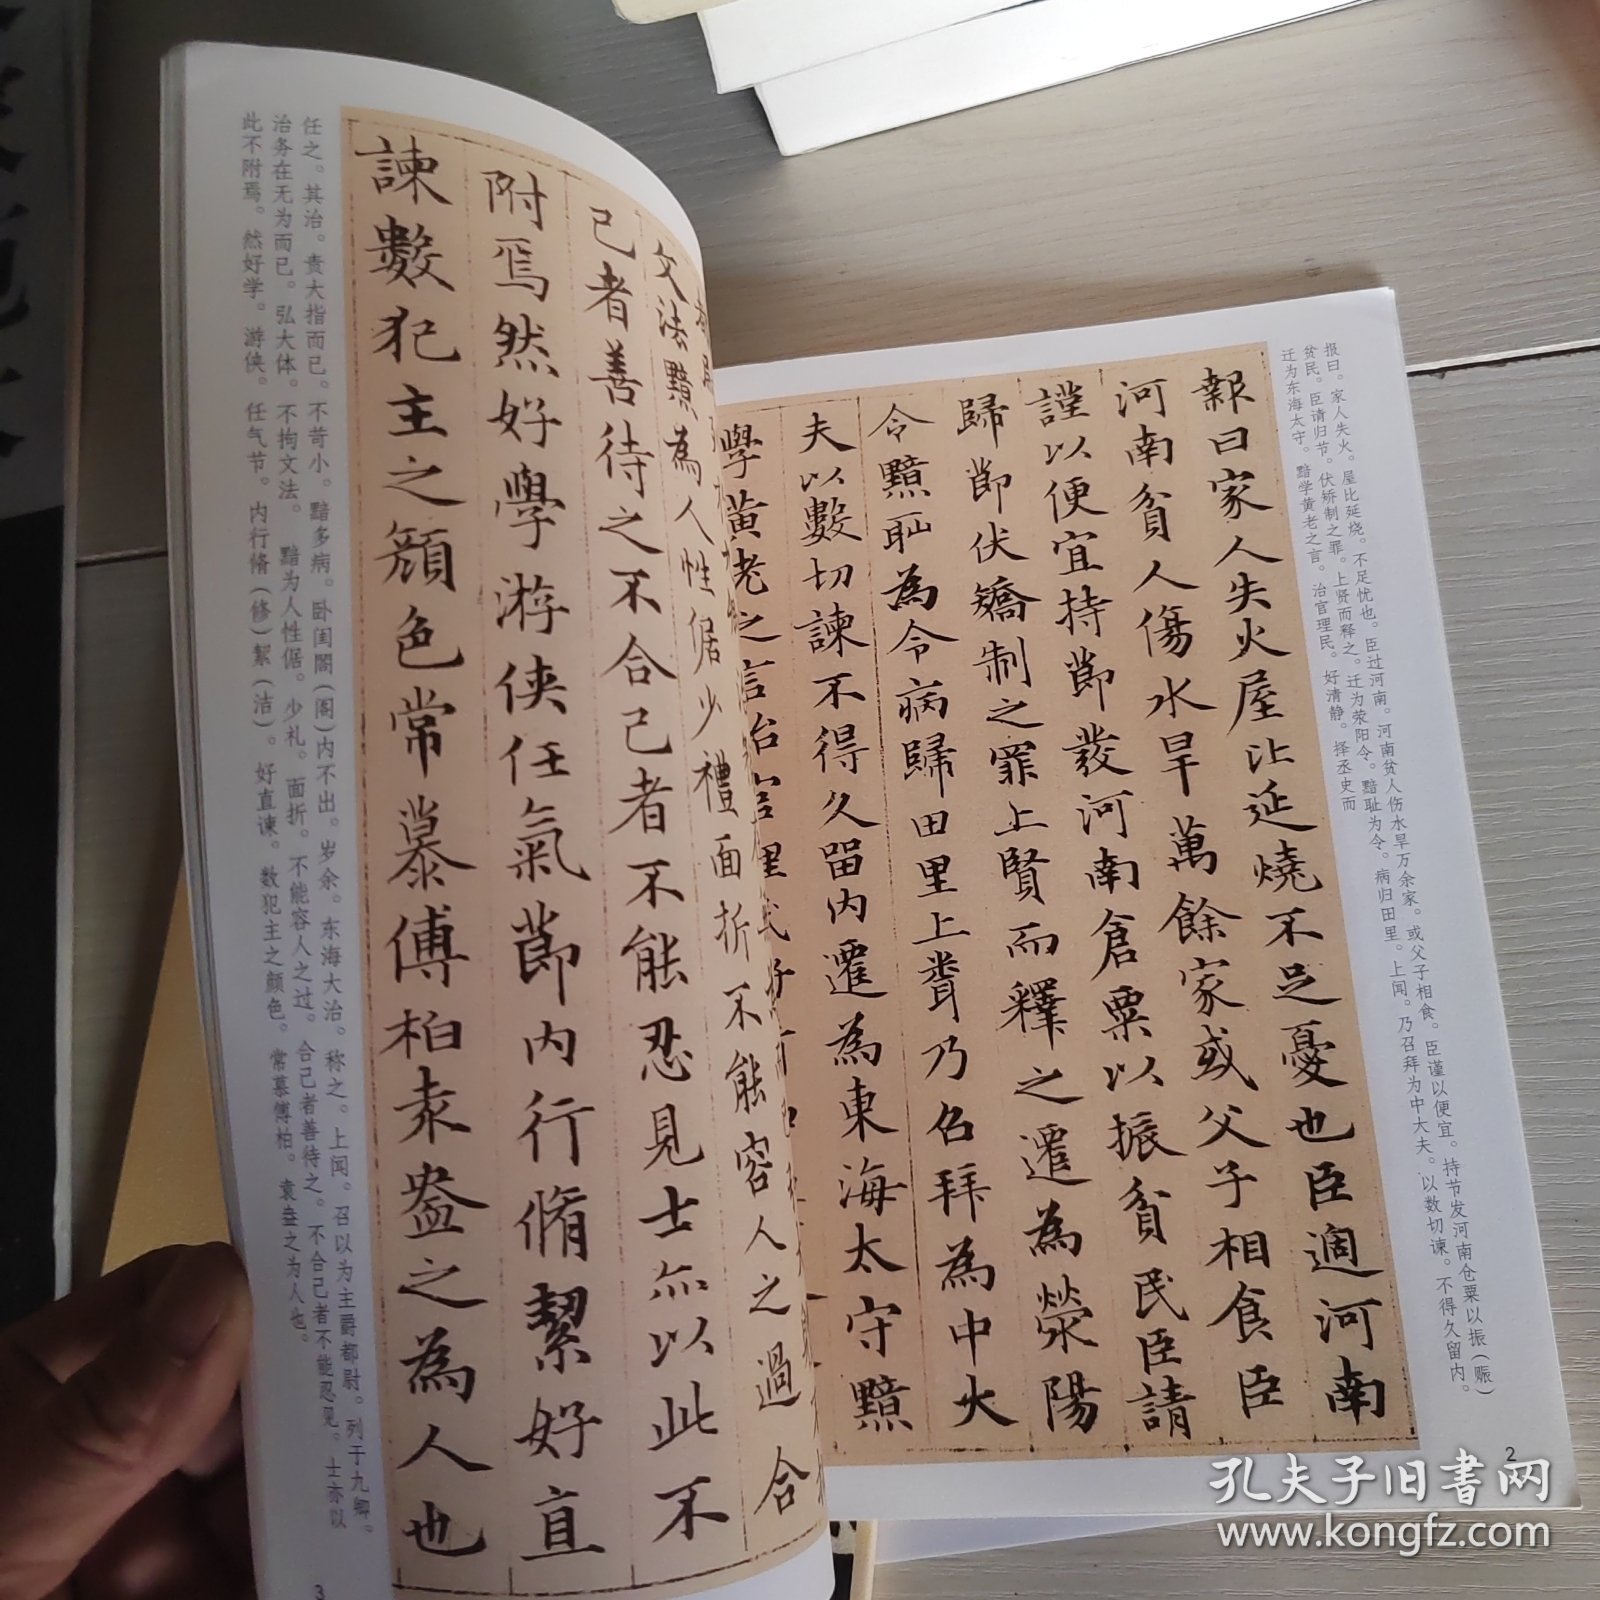 報曰家人失火屋比延燒不足憂也臣過河南
河南貧人傷水旱萬餘家或父子相食臣
謹以便宜持節發河南倉粟以振貧民臣請
歸節伏矯制之罪上賢而釋之遷為滎陽
令黯恥為令病歸田里上聞乃召拜為中大
夫以數切諫不得久留内遷為東海太守黯
學黃老之言治官理民好
报曰。家人失火。屋比延烧。不足忧也。臣过河南。河南贫人伤水旱万余家。或父子相食。臣谨以便宜。持节发河南仓粟以振(赈)
贫民。臣请归节。伏矫制之罪。上贤而释之。迁为荥阳令。黯耻为令。病归田里。上闻。乃召拜为中大夫。以数切谏。不得久留内。
迁为东海太守。黯学黄老之言。治官理民。好清静。择丞史而
2
文法黯為人性倨少禮面折不能容人之過合
己者善待之不合己者不能忍見士亦以此不
附焉然好學游俠任氣節内行脩絜好直
諫數犯主之顏色常慕傅柏袁盎之為人也
任之。其治。责大指而已。不苛小。黯多病。卧闺閤(阁)内不出。岁余。东海大治。称之。上闻。召以为主爵都尉。列于九卿。
治务在无为而已。弘大体。不拘文法。黯为人性倨。少礼。面折。不能容人之过。合己者善待之。不合己者不能忍见。士亦以
此不附焉。然好学。游侠。任气节。内行脩(修)絜(洁)。好直谏。数犯主之颜色。常慕傅柏。袁盎之为人也。
3
孔夫子旧书网
www.kongfz.com